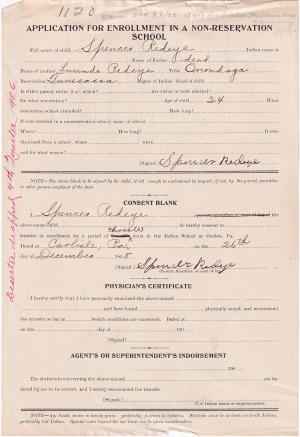 1120
APPLICATION FOR ENROLLMENT IN A NON-RESERVATION
SCHOOL
Full name of child Spencer Redeye Indian name is
Name of Father dead
Name of mother Lucinda Redeye Tribe Onondaga
Reservation Tunesassa Degree of Indian blood of child
Is either parent white, if so, which? Are either or both allotted?
On what reservation? Age of child 24 What
reservation school attended? How long? If ever
enrolled in a nonreservation school, name of school
When? How long? If ever
dismissed from a school, when from
and for what reason?
(Signed) Spencer Redeye
NOTE—The above blank to be signed by the child, if old enough to understand its import; if not, by the parent, guardian or other person cognizant of the facts
CONSENT BLANK
I, Spencer Redeye
above-name child, do hereby consent to
transfer or enrollment for a period of three years in the Indian School at Carlisle, Pa.
Dated at Carlisle, Pa. 26th
day of December 1905
(Signed) Spencer Redeye
PHYSICIAN'S CERTIFICATE
I hereby certify that I have personally examined the above-named
and have found physically sound, and recommend
the transfer so far as health conditions are concerned. Dated at
on the day of 190
(Signed)
AGENT'S OR SUPERINTENDENT'S INDORSEMENT
190
The statements concerning the above-named are
by me to be correct, and I hereby recommend the transfer.
(Signed)
U.S. Indian Agent or Superintendent.
NOTE—Age limits, twelve to twenty years preferably fourteen to eighteen. Students must be at least one-fourth Indian, preferably full Indian. Special cases beyond the age limit can be given consideration.
Deserter dropped 4th Quarter 1906